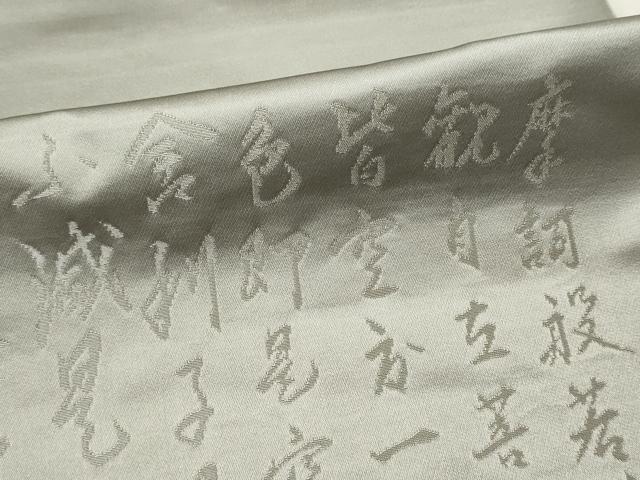 摩訶般若
觀自在菩
皆空度一
色即是空
舍利子
不滅